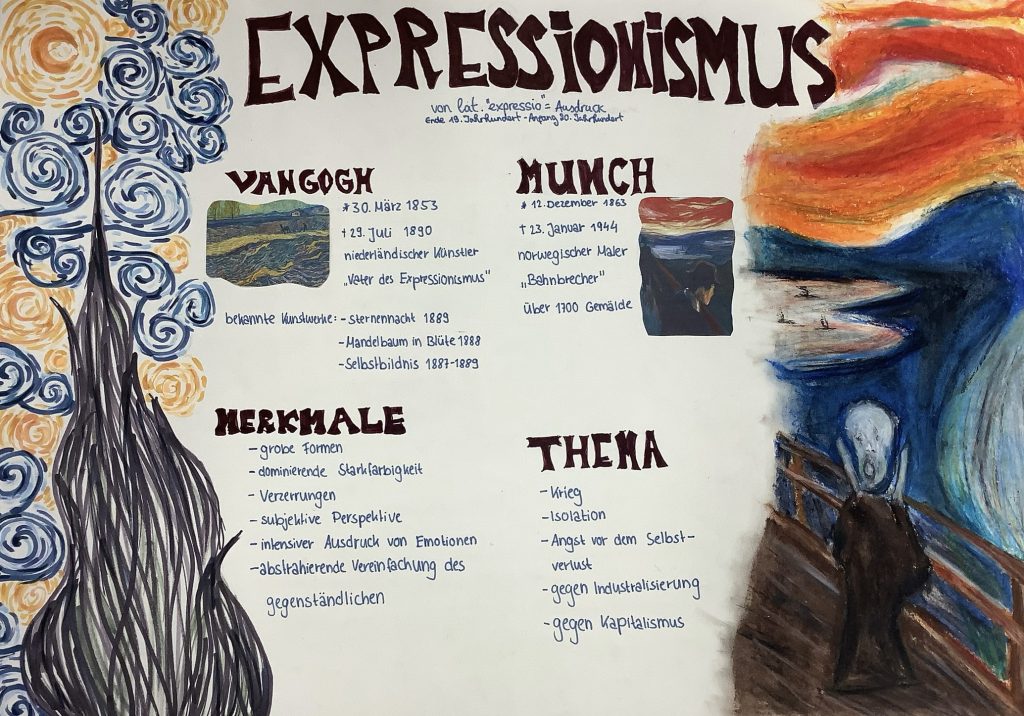 EXPRESSIONISMUS
von lat. "expressio" = Ausdruck
Ende 19. Jahrhundert - Anfang 20. Jahrhundert
VAN GOGH
* 30. März 1853
† 29. Juli 1890
niederländischer Künstler
„Vater des Expressionismus"
bekannte Kunstwerke: - Sternennacht 1889
- Mandelbaum in Blüte 1888
- Selbstbildnis 1887-1889
MUNCH
* 12. Dezember 1863
† 23. Januar 1944
norwegischer Maler
„Bahnbrecher"
über 1700 Gemälde
MERKMALE
- grobe Formen
- dominierende Starkfarbigkeit
- Verzerrungen
- subjektive Perspektive
- intensiver Ausdruck von Emotionen
- abstrahierende Vereinfachung des
gegenständlichen
THEMA
- Krieg
- Isolation
- Angst vor dem Selbst-
verlust
- gegen Industralisierung
- gegen Kapitalismus